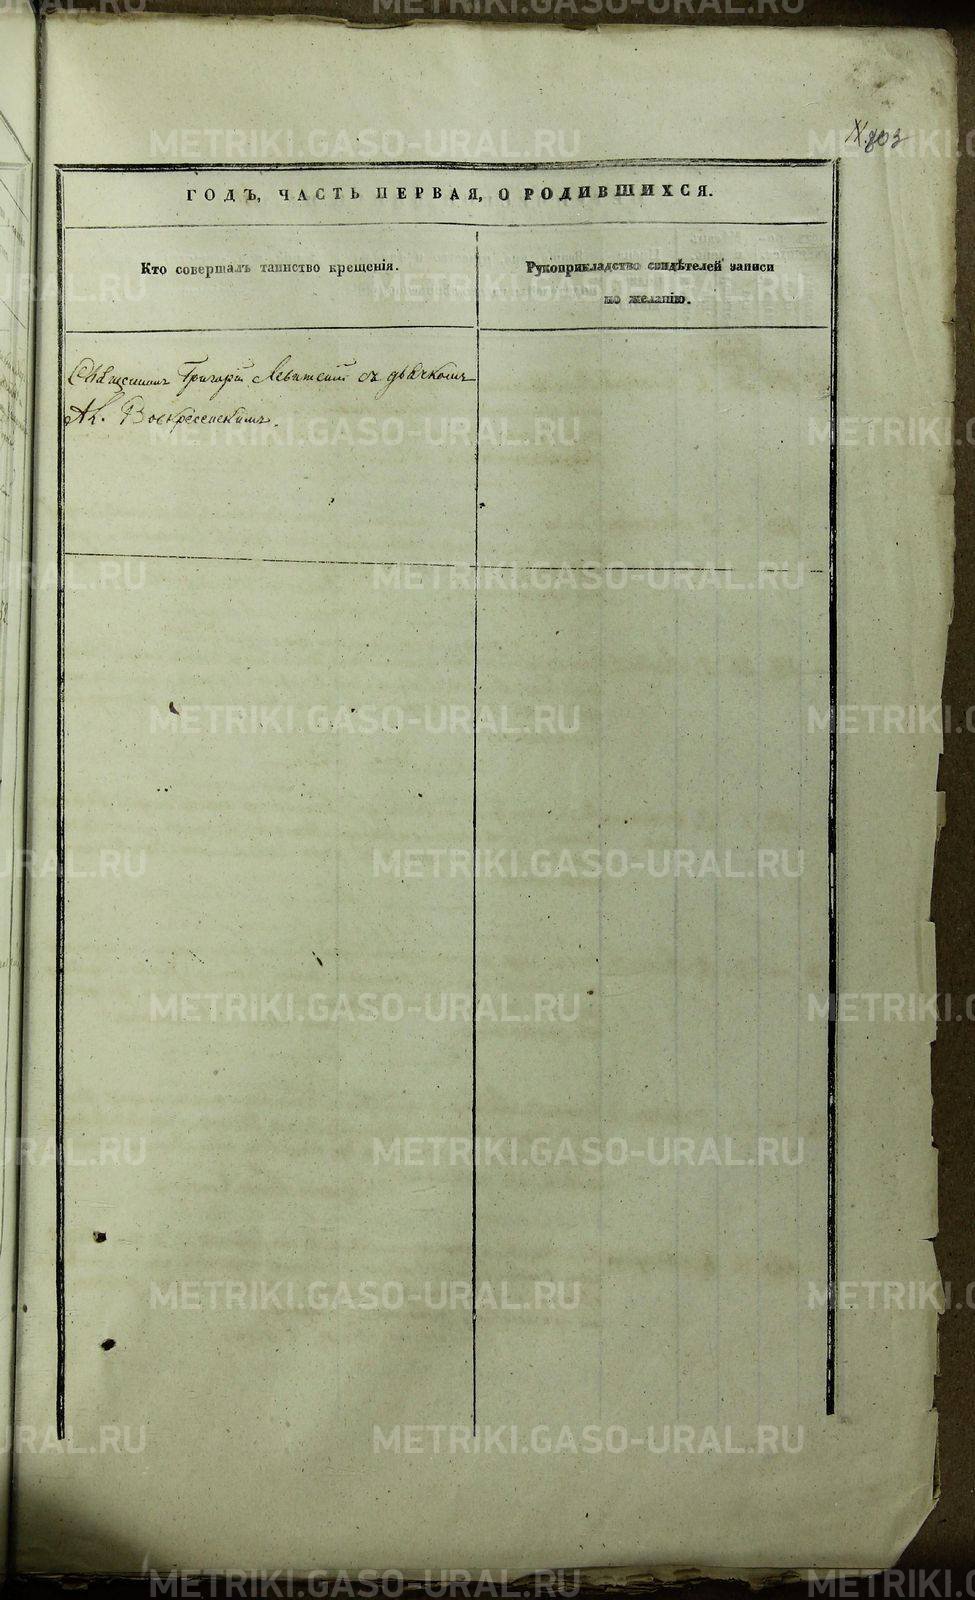 803
ГОДЪ, ЧАСТЬ ПЕРВАЯ, О РОДИВШИХСЯ.
Кто совершалъ таинство крещенія.
Рукоприкладство свидѣтелей записи
по желанію.
Священникъ Григорій Левитскій съ дьячкомъ
Ал. Воскресенскимъ.
METRIKI.GASO-URAL.RU